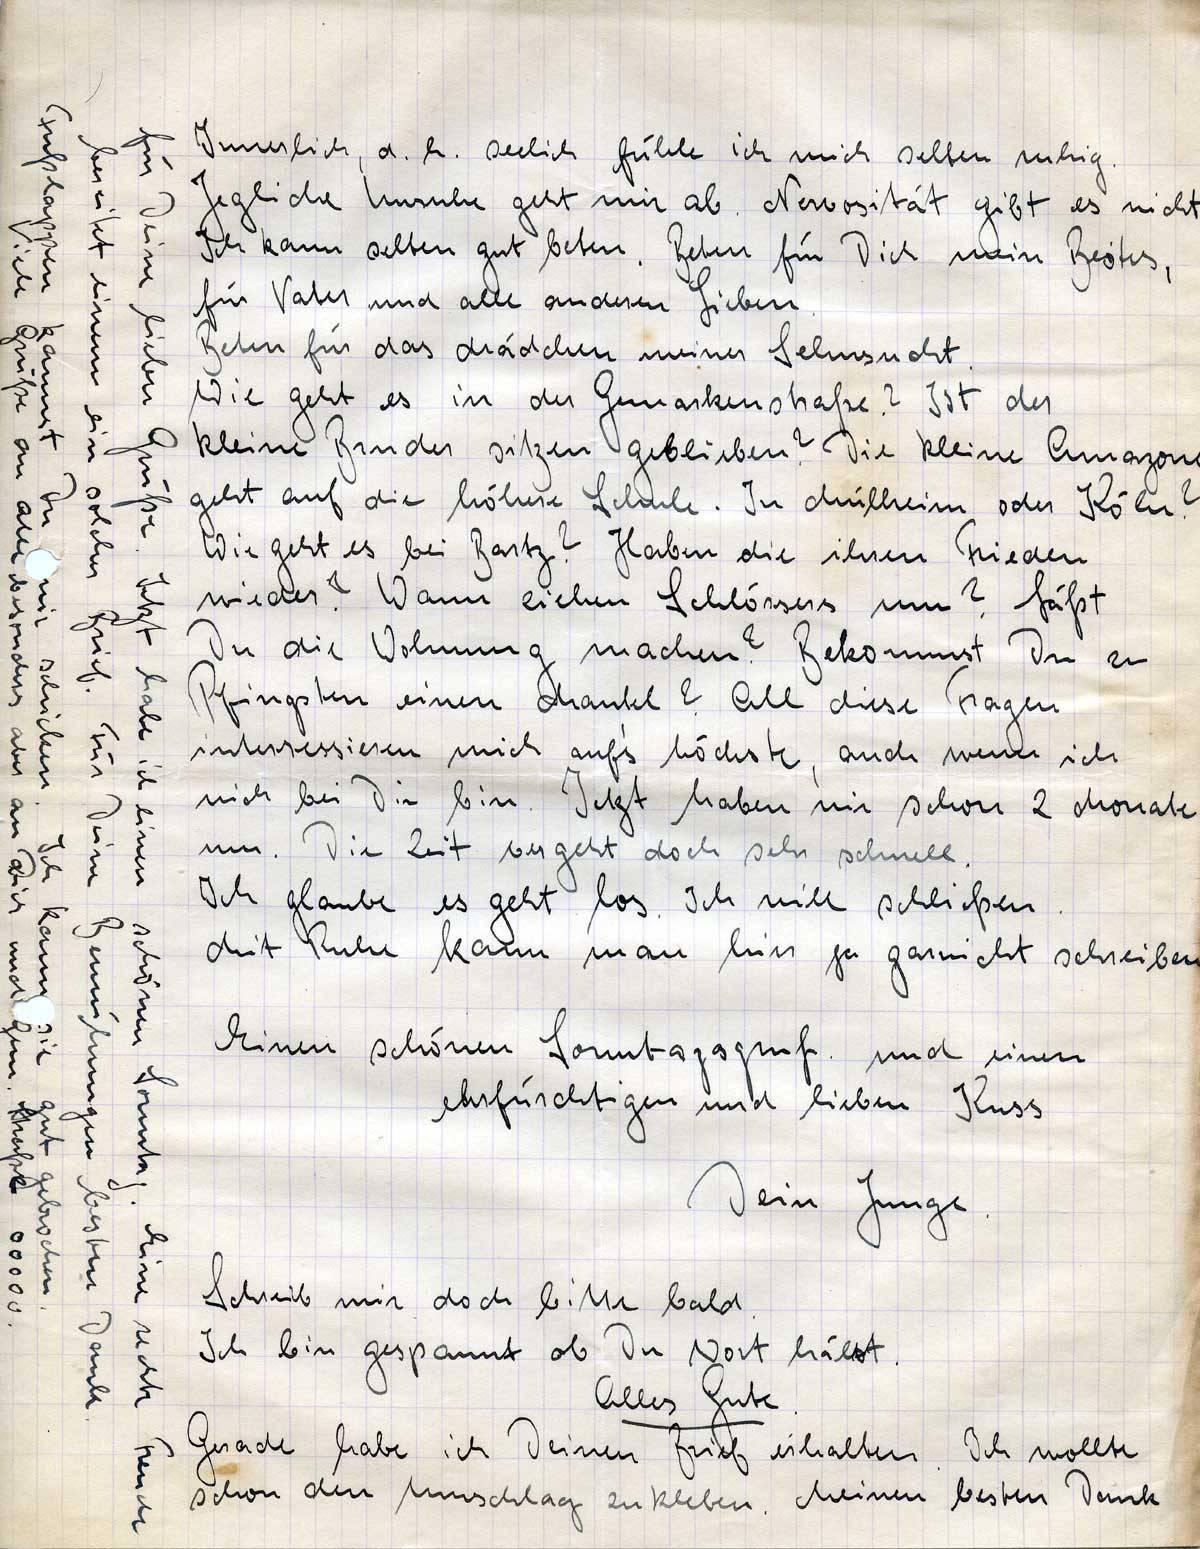 Innerlich, d. h. seelich fühle ich mich selten ruhig.
Jegliche Unruhe geht mir ab. Nervosität gibt es nicht
Ich kann selten gut beten. Beten für Dich mein
für Vater und alle anderen Lieben.
Beten für das Mädchen meiner Sehnsucht.
Wie geht es in der Gemarkenstraße? Ist der
kleine Bruder sitzen geblieben? Die kleine Amazone
geht auf die höhere Schule. In Mülheim oder Köln?
Wie geht es bei Bartz? Haben die ihren Frieden
wieder? Wann ziehen Schlössers um? Läßt
Du die Wohnung machen? Bekommst Du zu
Pfingsten einen Mantel? All diese Fragen
interressieren mich auf's höchste, auch wenn ich
nich bei Dir bin. Jetzt haben wir schon 2 Monate
um. Die Zeit vergeht doch sehr schnell.
Ich glaube es geht los. Ich will schließen.
Mit Ruhe kann man hier ja garnicht schreiben
Einen schönen Sonntagsgruß. und einen
ehrfürchtigen und lieben Kuss
Dein Junge.
Schreib mir doch bitte bald.
Ich bin gespannt ob Du Wort hälst.
Alles Gute.
Gerade habe ich Deinen Brief erhalten. Ich wollte
schon den Umschlag zukleben. Meinen besten Dank
für Deine lieben Grüße. Jetzt habe ich einen schönen Sonntag. Eine rechte Freude
bereitet einem ein solcher Brief. Für Deine Bemühungen besten Dank.
Fußlappen kannst Du mir schicken. Ich kann sie gut gebrochen.
Viele Grüße an alle besonders aber an Dich und 00000.